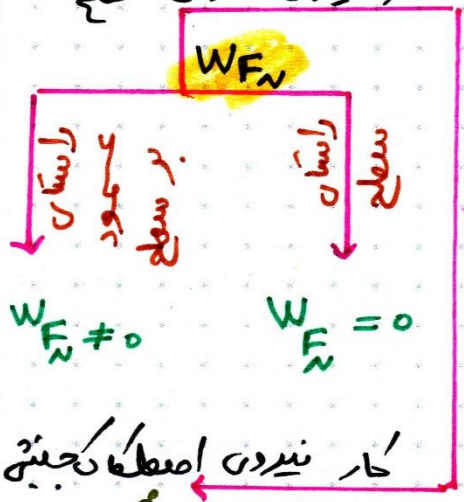 W F_N
راستای عمود بر سطح
راستای سطح
W F_N ≠ 0
W F_N = 0
کار نیروی اصطکاک جنبشی